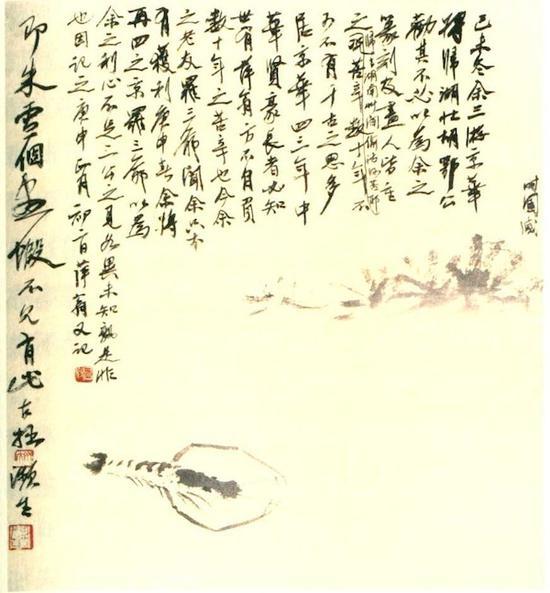 己未冬余三游京華
將歸湖壮胡鄂公
勸其不必以為余之
篆刻及畫人皆重
之苦辛数十年不
可不有千古之思多
居京華四三年中
華賢豪長者必知
世有萍翁方不自負
数十年之苦辛也今余
之老友羅三爺聞余
有獲利庚申春余將
再四之京羅三爺以為
余之利心不足二公之見各異未知孰是非
也因記之庚申正月初二日萍翁又記
即朱雪個畫蝦不見有此古拙 瀕生